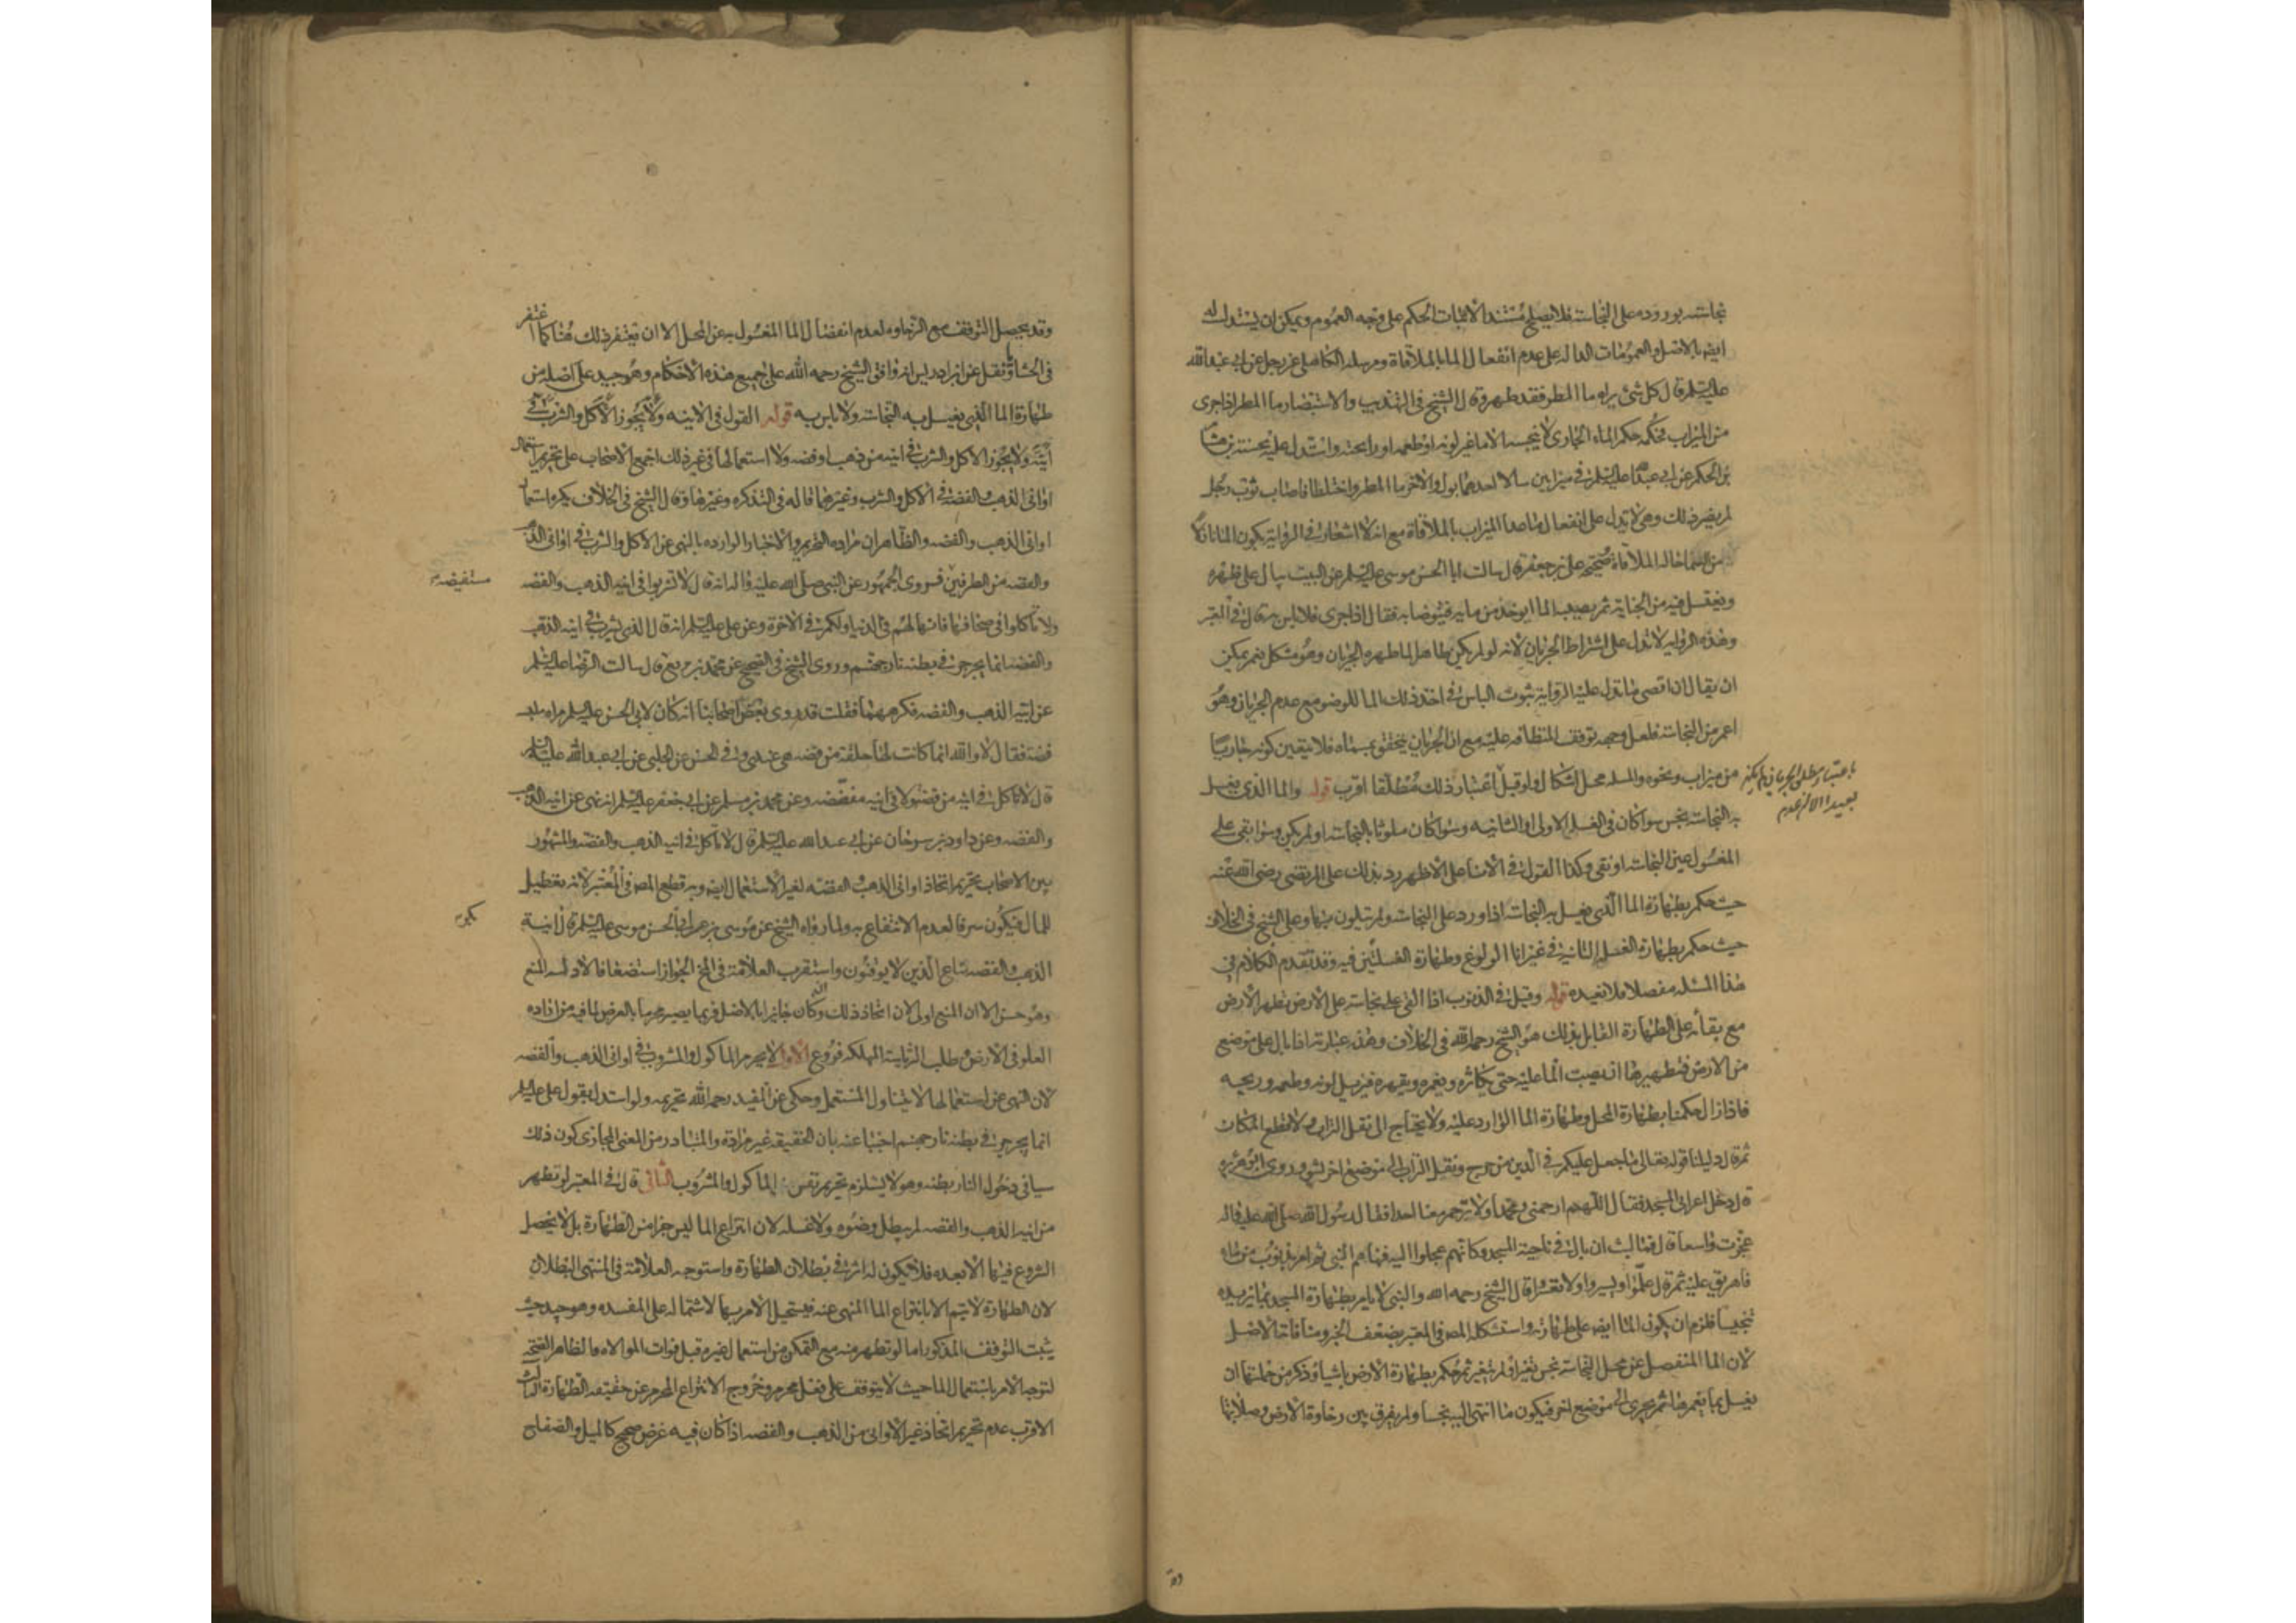 نجاسته بوروده على النجاسة فلا يصلح مستندا لاثبات الحكم على وجه العموم ويمكن ان يستدل له
ايض بالاصل والعمومات الدالة على عدم انفعال الماء بالملاقاة ومرسلة الكاهلى عن رجل عن ابى عبد الله
عليه السلم قال كل شئ يراه ماء المطر فقد طهر وقال الشيخ فى التهذيب والاستبصار ماء المطر اذا جرى
من الميزاب فحكمه حكم الماء الجارى لا ينجسه الا ما غير لونه او طعمه او رايحته واستدل عليه بحسنة هشام
بن الحكم عن ابى عبد الله عليه السلم فى ميزابين سالا احدهما بول والاخر ماء المطر واختلطا فاصاب ثوب رجل
لم يضر ذلك وهى لا تدل على انفعال ما عدا الميزاب بالملاقاة مع انه لا اشعار فى الرواية بكون الماء نازلا
من السماء حالة الملاقاة صحيحة على بن جعفر قال سالت ابا الحسن موسى عليه السلم عن البيت يبال على ظهره
ويغتسل فيه من الجنابة ثم يصيب الماء ايوخذ من مايه فيتوضا به فقال اذا جرى فلا باس به قال فى المعتبر
وهذه الرواية لا تدل على اشتراط الجريان لانه لو لم يكن طاهرا لما طهره الجريان وهو مشكل نعم يمكن
ان يقال ان اقصى ما تدل عليه الرواية ثبوت الباس فى اخذ ذلك الماء للوضوء مع عدم الجريان وهو
اعم من النجاسة فلعل وجهه توقف النظافة عليه مع ان الجريان يتحقق بمسماه فلا يتعين كونه جاريا
من ميزاب ونحوه والمسئلة محل اشكال ولو قيل اعتبار ذلك مطلقا اقرب قوله والماء الذى يغسل
باعتبار مطلق الجريان لم يكن
بعيدا الا ان عدم
به النجاسة نجس سوا كان فى الغسلة الاولى او الثانية وسوا كان ملوثا بالنجاسة او لم يكن وسوا بقى على
المغسول عين النجاسة او نقى وكذا القول فى الاناء على الاظهر رد بذلك على المرتضى رضى الله عنه
حيث حكم بطهارة الماء الذى يغسل به النجاسة اذا ورد على النجاسة ولم يتلون بها وعلى الشيخ فى الخلاف
حيث حكم بطهارة الغسلة الثانية فى غير اناء الولوغ وطهارة الغسلتين فيه وقد تقدم الكلام فى
هذا المسئلة مفصلا فلا نعيده قوله وقيل فى الذنوب اذا القى على نجاسة على الارض تطهر الارض
مع بقائه على الطهارة القايل بذلك هو الشيخ رحمه الله فى الخلاف وهذه عبارته اذا بال على موضع
من الارض فتطهيرها ان يصب الماء عليه حتى يكاثره ويغمره ويقهره فيزيل لونه وطعمه وريحه
فاذا زال حكمنا بطهارة المحل وطهارة الماء الوارد عليه ولا يحتاج الى نقل التراب ولا قطع المكان
ثم قال دليلنا قوله تعالى ما جعل عليكم فى الدين من حرج ونقل التراب الى موضع اخر يشق وروى ابو هريره
قال دخل اعرابى المسجد فقال اللهم ارحمنى ومحمدا ولا ترحم معنا احدا فقال له رسول الله صلى الله عليه واله
عجزت واسعا قال فما لبث ان بال فى ناحية المسجد وكانهم عجلوا اليه فنهاهم النبى ثم امر بذنوب من ماء
فاهريق عليه ثم قال علموا ويسروا ولا تعسروا قال الشيخ رحمه الله والنبى لا يامر بطهارة المسجد بما يزيده
تنجيسا فلزم ان يكون الماء ايض على طهارته واستشكله المص فى المعتبر بضعف الخبر ومنافاته الاصل
لان الماء المنفصل عن محل النجاسة نجس تغير او لم يتغير ثم حكم بطهارة الارض باشياء وذكر من جملتها ان
يغسل بما يغمرها ثم يجرى الى موضع اخر فيكون ما انتهى اليه نجسا ولم يفرق بين رخاوة الارض وصلابتها
وقد يحصل التوقف مع الرخاوه لعدم انفصال الماء المغسول به عن المحل الا ان يغتفر ذلك هنا كما اغتفر
فى الحشايا ونقل عن ابن ادريس انه وافق الشيخ رحمه الله على جميع هذه الاحكام وهو جيد على اصله من
طهارة الماء الذى يغسل به النجاسة ولا باس به قوله القول فى الانيه ولا يجوز الاكل والشرب فى
آنية ولا يجوز الاكل والشرب فى انيه من ذهب او فضه ولا استعمالها فى غير ذلك اجمع الاصحاب على تحريم استعمال
اوانى الذهب والفضة فى الاكل والشرب وغيرهما قاله فى التذكره وغيرها وقال الشيخ فى الخلاف يكره استعمال
اوانى الذهب والفضه والظاهر ان مراده التحريم والاخبار الوارده بالنهى عن الاكل والشرب فى اوانى الذهب
والفضه من الطرفين فروى الجمهور عن النبى صلى الله عليه واله انه قال لا تشربوا فى انيه الذهب والفضه
مستفيضه
ولا تاكلوا فى صحافها فانها لهم فى الدنيا ولكم فى الاخرة وعن على عليه السلم انه قال الذى يشرب فى انيه الذهب
والفضه انما يجرجر فى بطنه نار جهنم وروى الشيخ فى الصحيح عن محمد بن بزيع قال سالت الرضا عليه السلم
عن انيه الذهب والفضه فكرههما فقلت قد روى بعض اصحابنا انه كان لابى الحسن عليه السلم مراه ملبسه
فضه فقال لا والله انما كانت لها حلقه من فضه هى عندى وفى الحسن عن الحلبى عن ابى عبد الله عليه السلم
قال لا تاكل فى انيه من فضه ولا فى انيه مفضضه وعن محمد بن مسلم عن ابى جعفر عليه السلم انه نهى عن انيه الذهب
والفضه وعن داود بن سرحان عن ابى عبد الله عليه السلم قال لا تاكل فى انيه الذهب والفضه والمشهور
بين الاصحاب تحريم اتخاذ اوانى الذهب والفضه لغير الاستعمال ايض وبه قطع المص فى المعتبر لانه تعطيل
للمال فيكون سرفا لعدم الانتفاع به ولما رواه الشيخ عن موسى بن بكر عن ابى الحسن موسى عليه السلم قال انية
الذهب والفضه متاع الذين لا يوقنون واستقرب العلامة فى المخ الجواز استضعافا لادلة المنع
وهو حسن الا ان المنع اولى لان اتخاذ ذلك وان كان جايزا بالاصل فربما يصير محرما بالعرض لما فيه من اراده
العلو فى الارض وطلب الرياسة المهلكه فروع الاول لا يحرم الماكول والمشروب فى اوانى الذهب والفضه
لان النهى عن استعمالها لا يتناول المستعمل وحكى عن المفيد رحمه الله تحريمه ولو استدل بقول على عليه السلم
انما يجرجر فى بطنه نار جهنم اجبنا عنه بان الحقيقه غير مرادة والمتبادر من المعنى المجازى كون ذلك
سببا فى دخول النار بطنه وهو لا يستلزم تحريم نفس الماكول والمشروب الثانى قال فى المعتبر لو تطهر
من انيه الذهب والفضه لم يبطل وضوه ولا غسله لان انتزاع الماء ليس جزا من الطهارة بل لا يحصل
الشروع فيها الا بعده فلا يكون له اثر فى بطلان الطهارة واستوجه العلامة فى المنتهى البطلان
لان الطهارة لا يتم الا بانتزاع الماء المنهى عنه فيستحيل الامر بها لاشتماله على المفسده وهو جيد حيث
يثبت التوقف المذكور اما لو تطهر منه مع التمكن من استعمال غيره قبل فوات الموالاه فالظاهر الصحة
لتوجه الامر باستعمال الماء حيث لا يتوقف على فعل محرم وخروج الانتزاع المحرم عن حقيقه الطهارة الثالث
الاقرب عدم تحريم اتخاذ غير الاوانى من الذهب والفضه اذا كان فيه غرض صحيح كالميل والصفايح